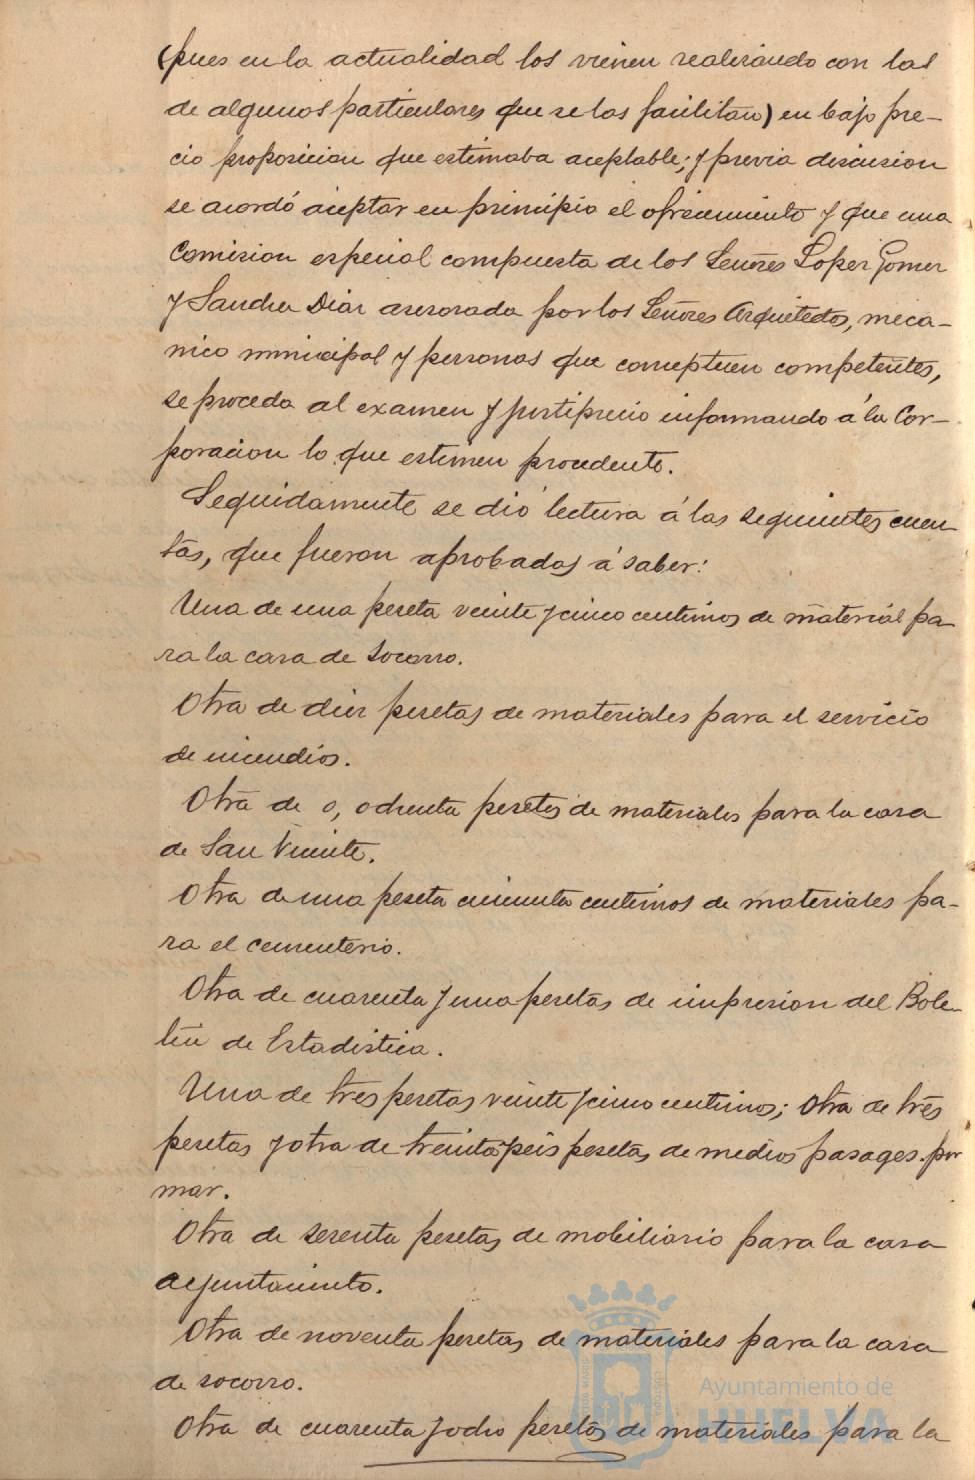 (pues en la actualidad los vienen realizando con las
de algunos particulares que se las facilitan) en bajo pre-
cio proposicion que estimaba aceptable; y previa discusion
se acordó aceptar en principio el ofrecimiento y que una
Comision especial compuesta de los Señores Lopez Gomez
y Sanchez Diaz asesorada por los Señores Arquitectos, meca-
nico municipal y personas que conceptuen competentes,
se proceda al examen y justiprecio informando á la Cor-
poracion lo que estimen procedente.
Seguidamente se dió lectura á las seguientes cuen
tas, que fueron aprobadas á saber:
Una de una peseta veinte y cinco centimos de material pa
ra la casa de Socorro.
Otra de diez pesetas de materiales para el servicio
de incendios.
Otra de o, ochenta pesetas de materiales para la casa
de San Vicente.
Otra de una peseta cincuenta centimos de materiales pa-
ra el cementerio.
Otra de cuarenta y una pesetas de impresion del Bole-
tin de Estadistica.
Una de tres pesetas veinte y cinco centimos; otra de tres
pesetas y otra de treinta y seis pesetas de medios pasages por
mar.
Otra de sesenta pesetas de mobiliario para la casa
ayuntamiento.
Otra de noventa pesetas de materiales para la casa
de socorro.
Otra de cuarenta y ocho pesetas de materiales para la
Ayuntamiento de
HUELVA